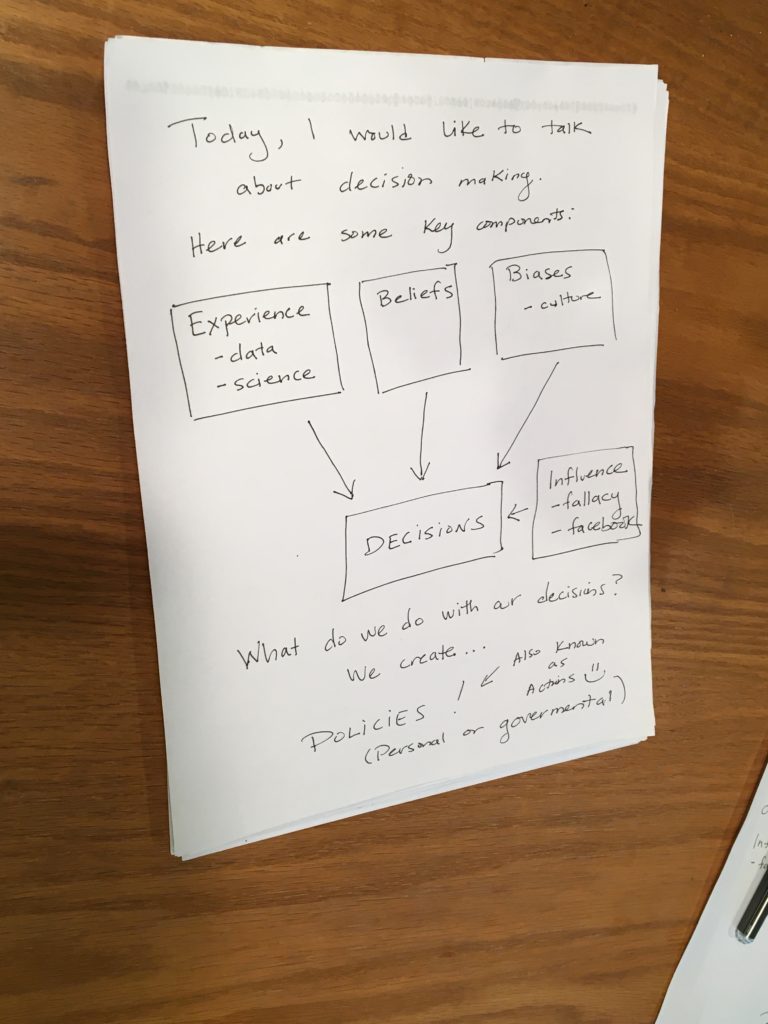 Today, I would like to talk
about decision making.
Here are some key components:
Experience
- data
- science
Beliefs
Biases
- culture
Influence
- fallacy
- facebook
DECISIONS
What do we do with our decisions?
We create...
POLICIES !
Also known
as
Actions
(Personal or govermental)